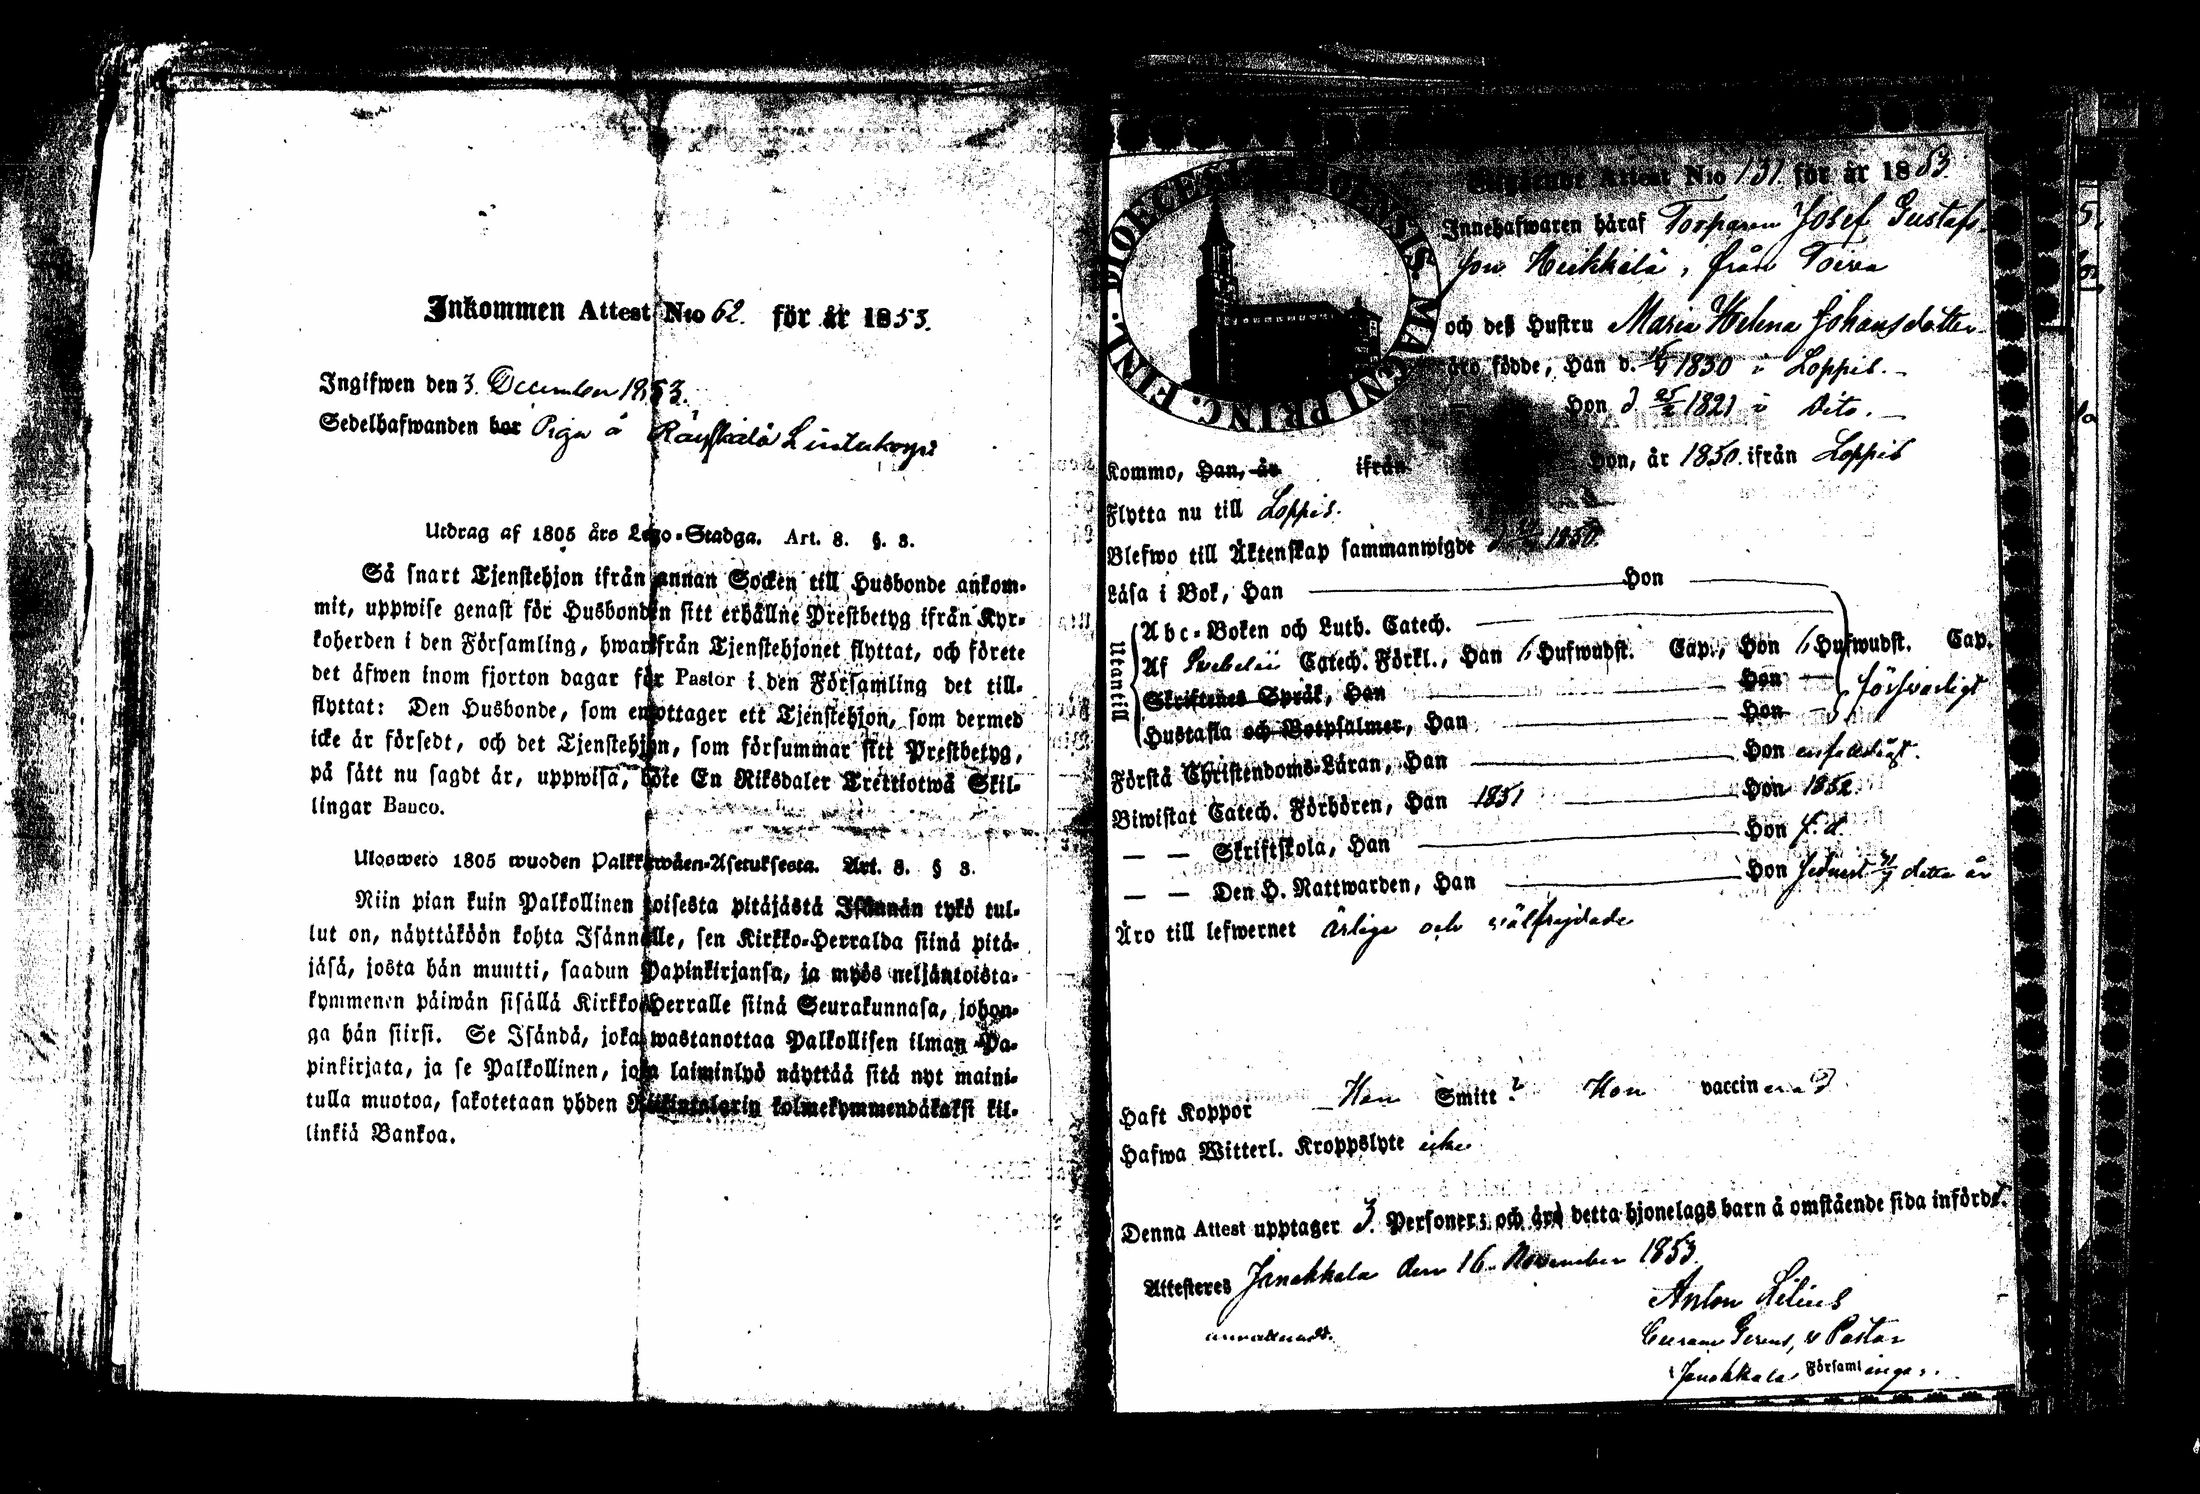 Inkommen Attest N:o 62. för år 1853.
Ingifwen den 3. December 1853.
Sedelhafwanden bor Piga å Räyskälä
Utdrag af 1805 års Lego-Stadga. Art. 8. §. 3.
Så snart Tjenstehjon ifrån annan Socken till Husbonde ankom-
mit, uppwise genast för Husbonden sitt erhållne Prestbetyg ifrån Kyr-
koherden i den Församling, hwarifrån Tjenstehjonet flyttat, och förete
det äfwen inom fjorton dagar för Pastor i den Församling det till-
flyttat: Den Husbonde, som emottager ett Tjenstehjon, som dermed
icke är försedt, och det Tjenstehjon, som försummar sitt Prestbetyg,
på sätt nu sagdt är, uppwisa, böte En Riksdaler Trettiotwå Skil-
lingar Banco.
Ulosweto 1805 wuoden Palkkawäen-Asetuksesta. Art. 8. § 3.
Niin pian kuin Palkollinen toisesta pitäjästä Isännän tykö tul-
lut on, näyttäköön kohta Isännälle, sen Kirkko-Herralda siinä pitä-
jäsä, josta hän muutti, saadun Papinkirjansa, ja myös neljäntoista-
kymmenen päiwän sisällä Kirkko-Herralle siinä Seurakunnasa, johon-
ga hän siirsi. Se Isändä, joka wastanottaa Palkollisen ilman Pa-
pinkirjata, ja se Palkollinen, joka laiminlyö näyttää sitä nyt maini-
tulla muotoa, sakotetaan yhden Riikintalarin kolmekymmendäkaksi kil-
linkiä Bankoa.
DIOECESIS MAGNI PRINC. FINL.
Attest N:o 131. för år 1853.
Innehafwaren häraf Torparen Josef Gustafs-
son Heikkilä, från Toivo
och deß Hustru Maria Helena Johansdotter
äro födde, Han d. 1830 i Loppis.
Hon d 25/2 1821 i Dito.
Komme, Han, år ifrån Hon, år 1850. ifrån Loppis
Flytta nu till Loppis.
Blefwo till Äktenskap sammanwigde d 1850.
Läsa i Bok, Han Hon
Utantill
Abc-Boken och Luth. Catech.
Af Svebelii Catech. Förkl., Han 6 Hufwudst. Cap., Hon 6 Hufwudst. Cap.
Skriftenes Språk, Han Hon
försvarligt
Hustafla och Botpsalmer, Han Hon
Förstå Christendoms-Läran, Han Hon enfaldigt.
Biwistat Catech. Förhören, Han 1851 Hon 1852.
— — Skriftskola, Han Hon
— — Den H. Nattwarden, Han Hon detta år
Äro till lefwernet ärlige och välfrejdade
Haft Koppor Han Smitt? Hon vaccinerad
Hafwa Witterl. Kroppslyte icke
Denna Attest upptager 3. Personer; och äro detta hjonelags barn å omstående sida införde.
Attesteres Janakkala den 16. November 1853.
Anton Lilius
v Pastor
Janakkala Församlinga